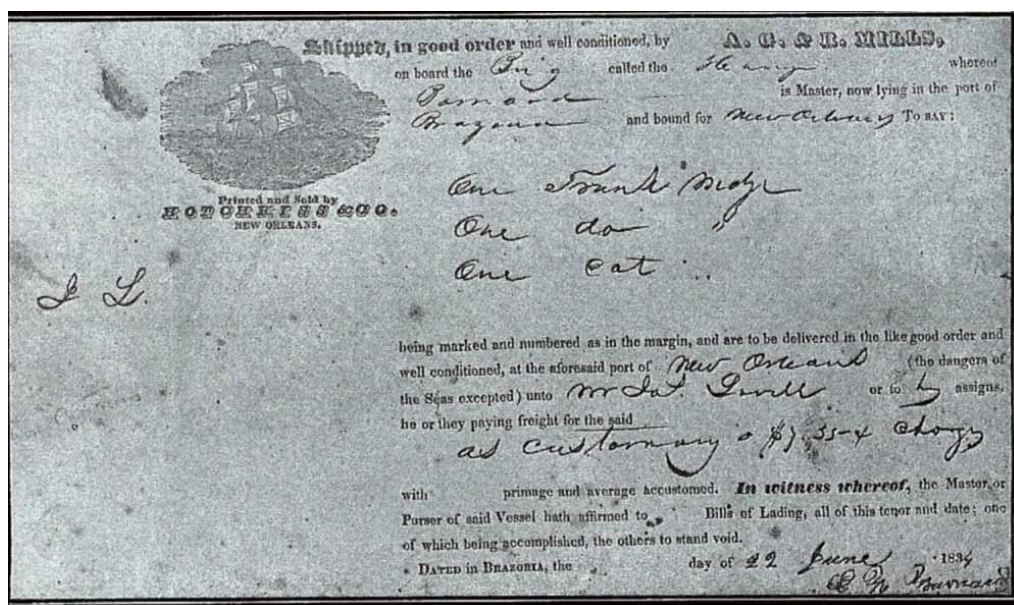 Shipped, in good order and well conditioned, by A. G. & R. MILLS,
on board the Brig called the whereof
is Master, now lying in the port of
Brazoria and bound for New Orleans To SAY:
One Trunk Mdze
One do "
One
Printed and Sold by
HOTCHKISS & CO.
NEW ORLEANS.
J L.
being marked and numbered as in the margin, and are to be delivered in the like good order and
well conditioned, at the aforesaid port of New Orleans (the dangers of
the Seas excepted) unto Mr or to assigns,
he or they paying freight for the said
as customary
with primage and average accustomed. In witness whereof, the Master or
Purser of said Vessel hath affirmed to Bills of Lading, all of this tenor and date; one
of which being accomplished, the others to stand void.
DATED in BRAZORIA, the day of 22 June 1834